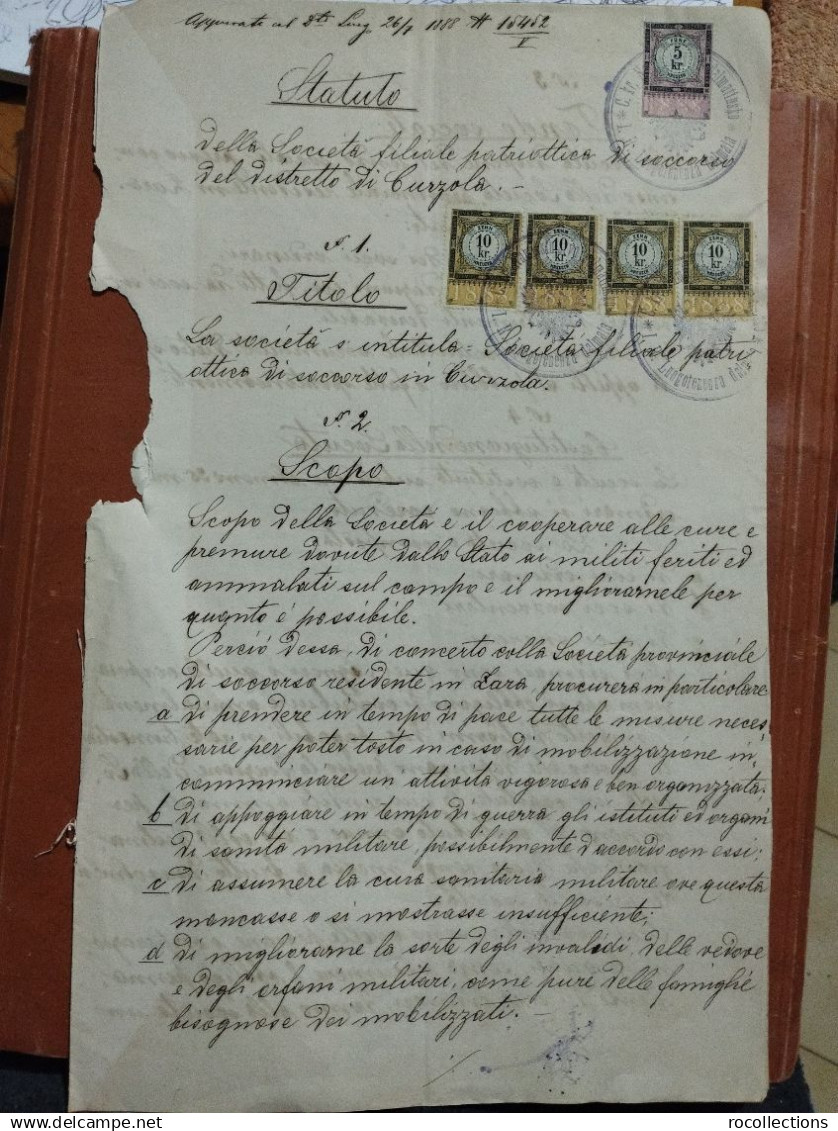 Approvato col Lung 26/7 1888 # 15452
V
5
kr.
Statuto
della Società filiale patriottica di soccorso
del distretto di Curzola. -
10
kr.
10
kr.
10
kr.
10
kr.
§. 1.
Titolo
La società s intitula = Società filiale patri
ottica di soccorso in Curzola.
§. 2.
Scopo
Scopo della Società e il cooperare alle cure e
premure dovute dallo Stato ai militi feriti ed
ammalati sul campo e il migliorarnele per
quanto é possibile.
Perció dessa, di concerto colla Società provinciale
di soccorso residente in Zara, procurera in particolare:
a di prendere in tempo di pace tutte le misure neces,
sarie per poter tosto in caso di mobilizzazione in,
comminciare un attività vigorosa e ben organizzata.
b di appoggiare in tempo di guerra gli istituti ed organi
di sanità militare, possibilmente d accordo con essi;
c di assumere la cura sanitaria militare ove questa
mancasse o si mostrasse insufficiente;
d di migliorarne la sorte degli invalidi, delle vedove
e degli orfani militari, come pure delle famiglie
bisognose dei mobilizzati. -
rocollections@gmail.com